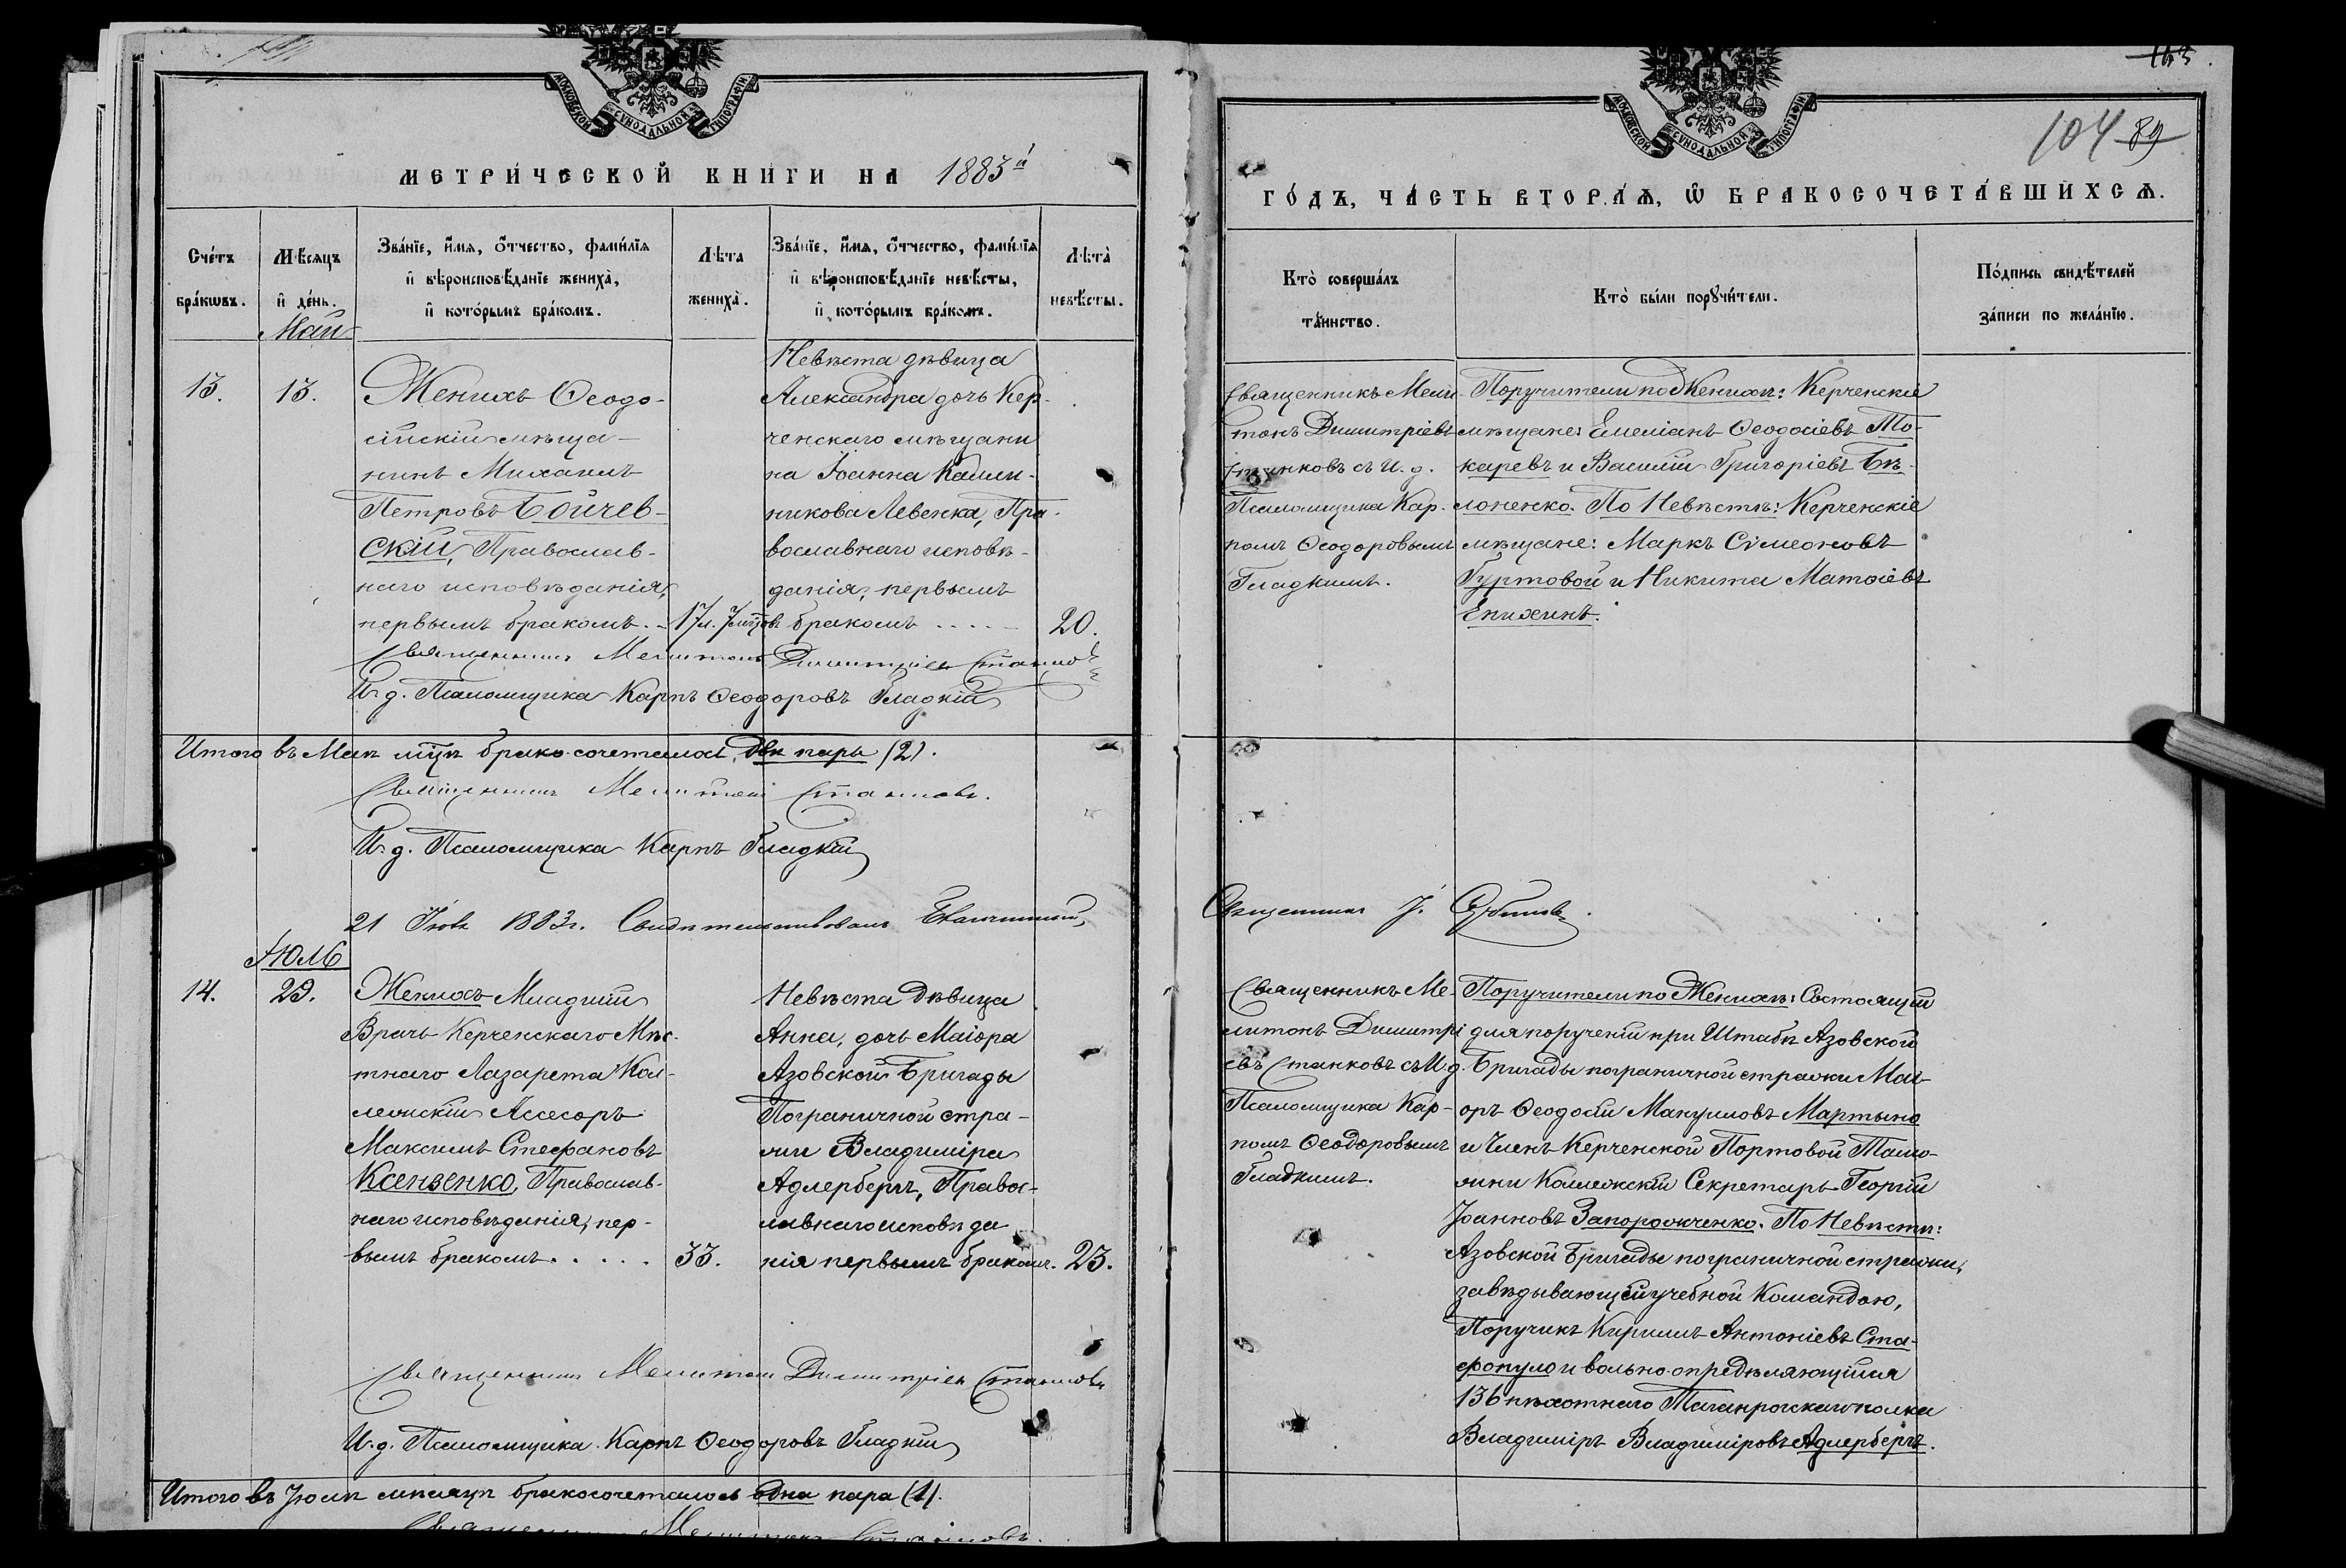 МОСКОВСКОЙ СѴНОДАЛЬНОЙ ТИПОГРАФІИ
МЕТРИЧЕСКОЙ КНИГИ НА 1883й
Счетъ браковъ.
Мѣсяцъ и день.
Званіе, имя, отчество, фамилія
и вѣроисповѣданіе жениха,
и которымъ бракомъ.
Лѣта
жениха.
Званіе, имя, отчество, фамилія
и вѣроисповѣданіе невѣсты,
и которымъ бракомъ.
Лѣта
невѣсты.
Май
13.
13.
Женихъ Ѳеодо-
сійскій мѣща-
нинъ Михаилъ
Петровъ Бойчев-
скій, Православ-
наго исповѣданія,
первымъ бракомъ.
17 л. 7 мцовъ
Невѣста дѣвица
Александра дочь Кер-
ченскаго мѣщани
на Іоанна Калин-
никова Левенка, Пра-
вославнаго исповѣ-
данія, первымъ
бракомъ . . . .
20.
Священникъ Мелитонъ Димитріевъ Станковъ
И. д. Псаломщика Карпъ Ѳеодоровъ Гладкій
Итого въ Маѣ мцѣ брако-сочеталось двѣ пары (2).
Священникъ Мелитонъ Станковъ.
И. д. Псаломщика Карпъ Гладкій
21 1883г. Свидѣтельствовалъ Благочинный,
Іюль
14.
29.
Женихъ Младшій
Врачъ Керченскаго Мѣс-
тнаго Лазарета Кол-
лежскій Асесоръ
Максимъ Стефановъ
Ксензенко, Православ-
наго исповѣданія, пер-
вымъ бракомъ. . . . .
33.
Невѣста Дѣвица
Анна, дочь Маіора
Азовской Бригады
Пограничной стра-
жи Владиміра
Адлербергъ, Правос-
лавнаго исповѣда
нія первымъ бракомъ.
23.
Священникъ Мелитонъ Димитріевъ Станковъ
И. д. Псаломщика Карпъ Ѳеодоровъ Гладкій
Итого въ Іюлѣ мѣсяцѣ бракосочеталось одна пара (1).
Священникъ Мелитонъ Станковъ.
МОСКОВСКОЙ СѴНОДАЛЬНОЙ ТИПОГРАФІИ
104 89
ГОДЪ, ЧАСТЬ ВТОРАЯ, Ѡ БРАКОСОЧЕТАВШИХСЯ.
Кто совершалъ
таинство.
Кто были поручители.
Подпись свидѣтелей
записи по желанію.
Священникъ Мели-
тонъ Димитріевъ
Станковъ съ И. д.
Псаломщика Кар-
помъ Ѳеодоровымъ
Гладкимъ.
Поручители по Женихѣ: Керченскіе
мѣщане: Емеліанъ Ѳеодосіевъ То-
каревъ и Василій Григоріевъ Бѣ-
лоненко. По Невѣстѣ: Керченскіе
мѣщане: Маркъ Сѵмеоновъ
Гуртовой и Никита Матѳіевъ
Епихинъ.
Священникъ І.
Священникъ Ме-
литонъ Димитрі
евъ Станковъ съ И. д.
Псаломщика Кар-
помъ Ѳеодоровымъ
Гладкимъ.
Поручители по Женихѣ: Состоящій
для порученій при Штабѣ Азовской
Бригады пограничной стражи Маі-
оръ Ѳеодосій Мануиловъ Мартыно
и Членъ Керченской Портовой Тамо-
жни Коллежскій Секретарь Георгій
Іоанновъ Запорожченко. По Невѣстѣ:
Азовской Бригады пограничной стражи,
завѣдывающій учебной Командою,
Поручикъ Кириллъ Антоніевъ Ста-
фопуло и вольно-опредѣляющійся
136 пѣхотнаго Таганрогскаго полка
Владиміръ Владиміровъ Адлербергъ.